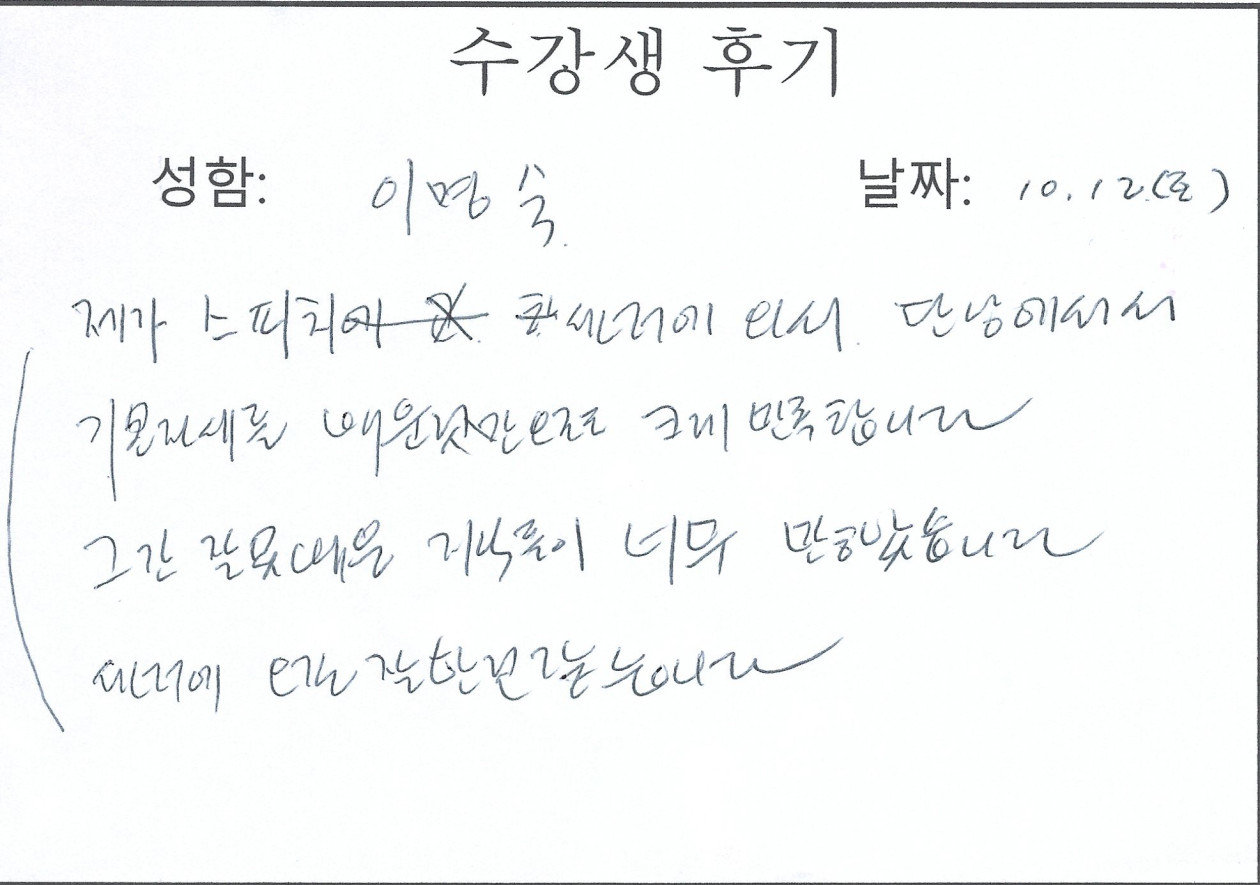 수강생 후기
성함: 이명숙 날짜: 10.12(토)
제가 스피치 센터에 와서 단상에 서서
기본자세를 배운것만으로도 크게 만족합니다
그간 잘못 배운 지식들이 너무 많았습니다
센터에 오길 잘한것 같습니다